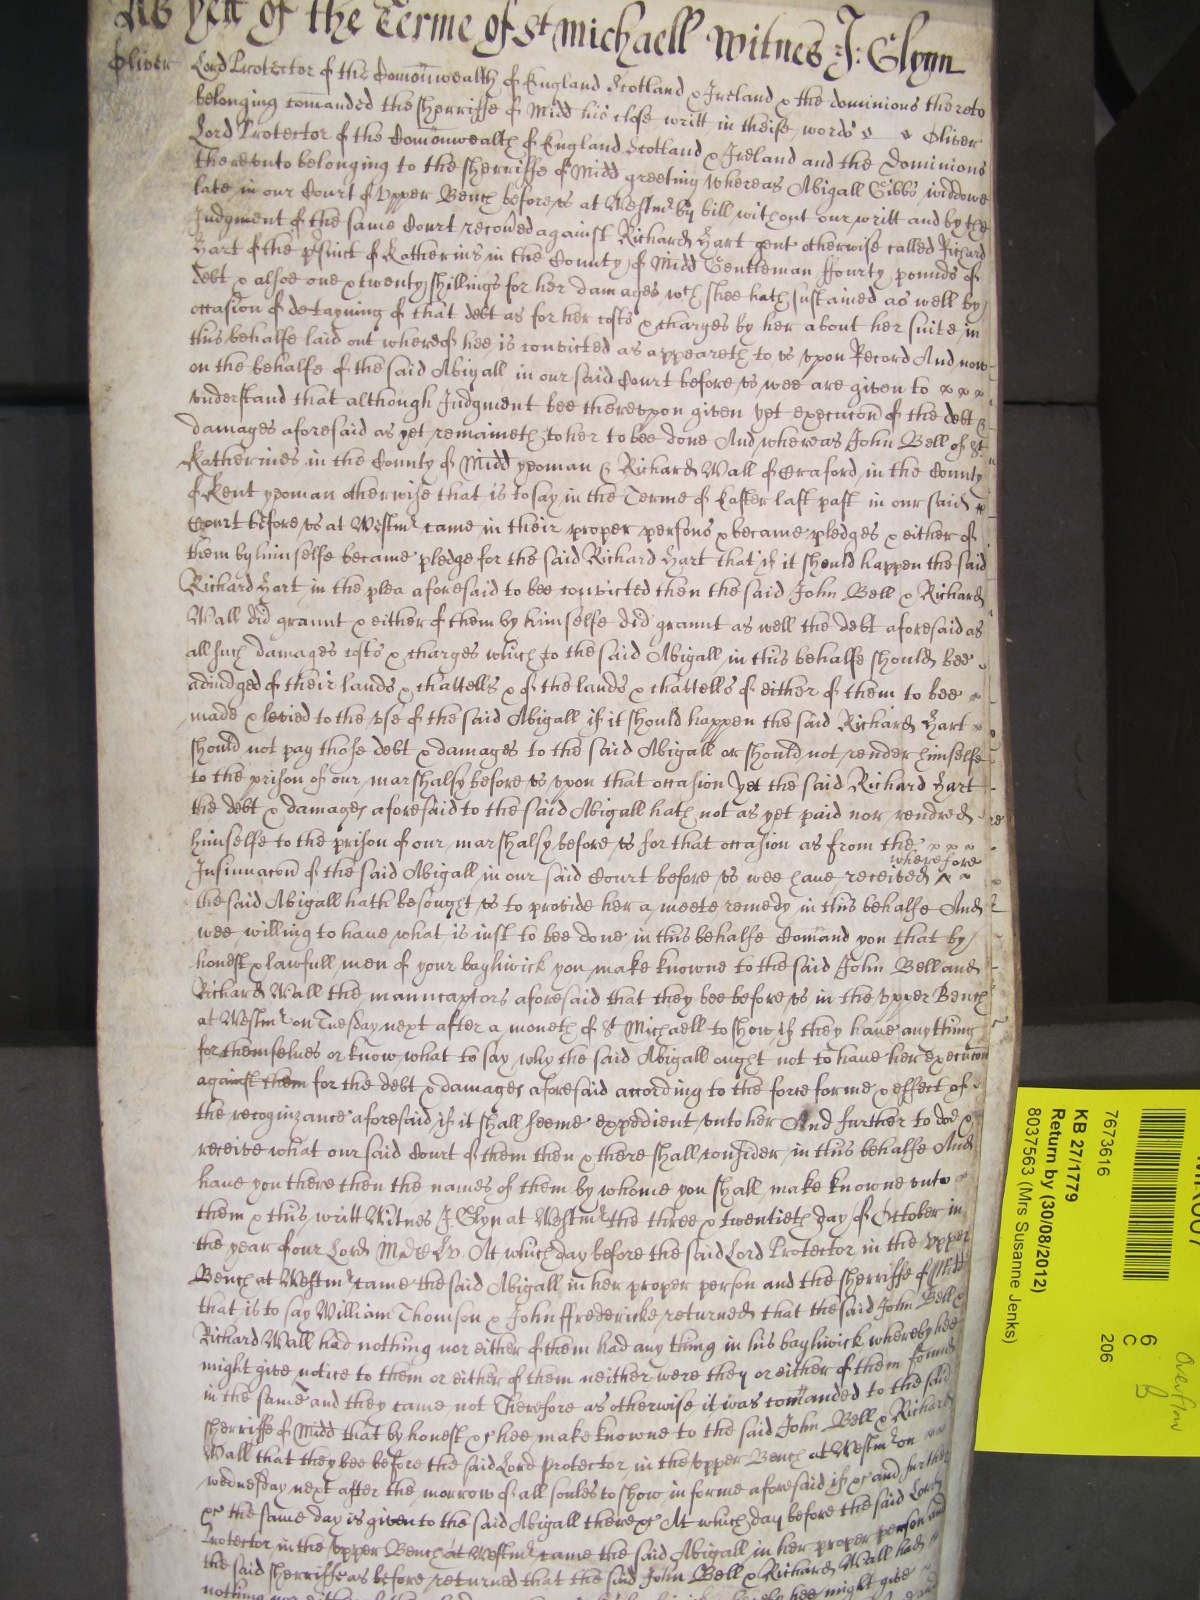 As yett of the Terme of St Michaell Witnes J: Glynn
Oliver Lord Protector of the Comonwealth of England Scotland & Ireland & the dominions thereto
belonging comanded the sherriffe of Midd his close writt in theise words Oliver
Lord Protector of the Comonwealth of England Scotland & Ireland and the Dominions
therevnto belonging to the sherriffe of Midd greeting whereas Abigall Gibbs widdowe
late in our Court of Vpper Bench before vs at Westmr by bill without our writt and by the
Judgment of the same Court recoued against Richard Hart gent otherwise called Richard
Hart of the psinct of Katherins in the County of Midd Gentleman ffourty pounds of
debt & alsoe one & twenty shillings for her damages wch shee hath sustained as well by
occasion of detayning of that debt as for her costs & charges by her about her suite in
this behalfe laid out whereof hee is convicted as appeareth to vs vpon Record And now
on the behalfe of the said Abigall in our said Court before vs wee are given to
vnderstand that although Judgment bee therevpon given yet execucon of the debt &
damages aforesaid as yet remaineth to her to bee done And whereas John Bell of St
Katherines in the County of Midd yeoman & Richard Wall of Craford in the County
of Kent yeoman otherwise that is to say in the Terme of Easter last past in our said
Court before vs at Westmr came in their proper persons & became pledges & either of
them by himselfe became pledge for the said Richard Hart that if it should happen the said
Richard Hart in the plea aforesaid to bee convicted then the said John Bell & Richard
Wall did graunt & either of them by himselfe did graunt as well the debt aforesaid as
all such damages costs & charges which to the said Abigall in this behalfe should bee
adiudged of their lands & chattells & of the lands & chattells of either of them to bee
made & levied to the vse of the said Abigall if it should happen the said Richard Hart
should not pay those debt & damages to the said Abigall or should not render himselfe
to the prison of our marshalsy before vs vpon that occasion Yet the said Richard Hart
the debt & damages aforesaid to the said Abigall hath not as yet paid nor rendred
himselfe to the prison of our marshalsy before vs for that occasion as from the
Insinuacon of the said Abigall in our said Court before vs wee haue received wherefore
the said Abigall hath besought vs to provide her a meete remedy in this behalfe And
wee willing to haue what is iust to bee done in this behalfe Comand you that by
honest & lawfull men of your bayliwick you make knowne to the said John Bell and
Richard Wall the manucaptors aforesaid that they bee before vs in the Vpper Bench
at Westmr on Tuesday next after a moneth of St Michaell to show if they haue anything
for themselues or know what to say why the said Abigall ought not to haue her execucon
against them for the debt & damages aforesaid according to the force forme & effect of
the recognizance aforesaid if it shall seeme expedient vnto her And further to doe &
receive what our said Court of them then & there shall consider in this behalfe And
haue you there then the names of them by whome you shall make knowne vnto
them & this writt Witnes J. Glyn at Westmr the three & twentieth day of October in
the year of our Lord MDCLV. At which day before the said Lord Protector in the Vpper
Bench at Westmr came the said Abigall in her proper person and the sherriffe of Midd
that is to say William Thomson & John ffredericke returned that the said John Bell &
Richard Wall had nothing nor either of them had any thing in his bayliwick whereby hee
might give notice to them or either of them neither were they or either of them found
in the same and they came not Therefore as otherwise it was comanded to the said
sherriffe of Midd that by honest &c hee make knowne to the said John Bell & Richard
Wall that they bee before the said Lord protector in the vpper Bench at Westmr on
wednesday next after the morrow of all soules to show in forme aforesaid if &c and further
&c the same day is given to the said Abigall there &c At which day before the said Lord
Protector in the vpper Bench at Westmr came the said Abigall in her proper person and
the said sherriffe as before returned that the said John Bell & Richard Wall had
nothing nor either of them hee might give
7673616
KB 27/1779
Return by (30/08/2012)
8037563 (Mrs Susanne Jenks)
6
C
206
Overflow
B